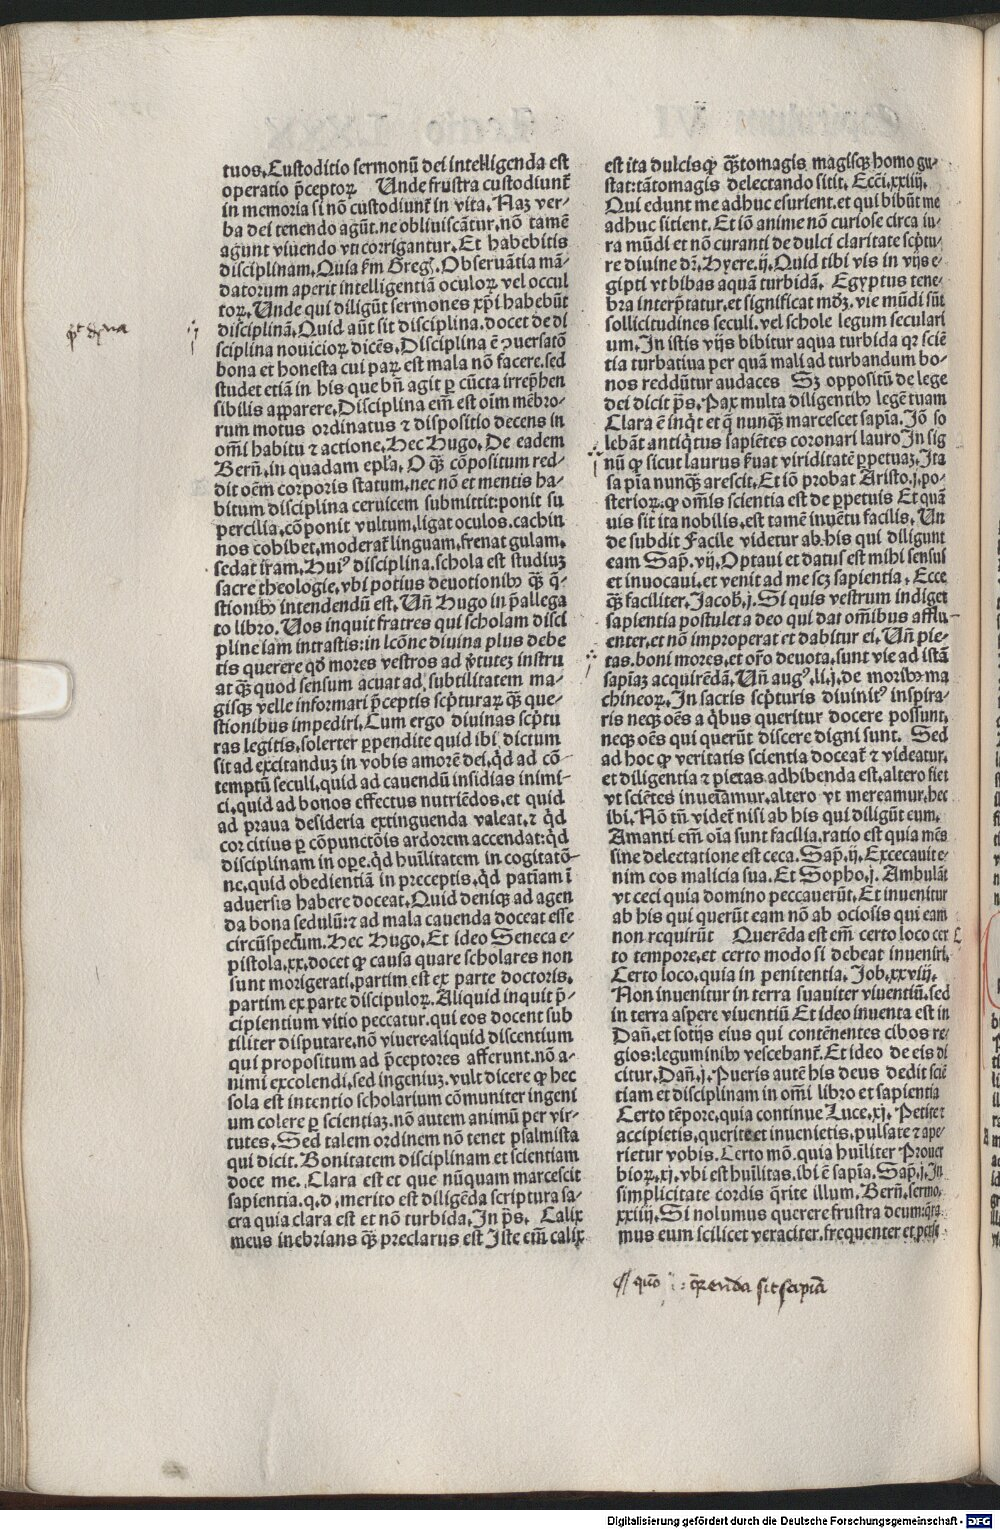 tuos. Custoditio sermonū dei intelligenda est
operatio p̄ceptoꝝ Unde frustra custodiunt̄
in memoria si nō custodiunt̄ in vita. Naꝫ ver-
ba dei tenendo agūt. ne obliuiscātur. nō tamē
agunt viuendo vt corrigantur. Et habebitis
disciplinam. Quia ẜm Greg. Obseruātia mā-
datorum aperit intelligentiā oculoꝝ vel occul
toꝝ. Unde qui diligūt sermones xp̄i habebūt
disciplinā. Quid aūt sit disciplina. docet de di
sciplina nouicioꝝ dicēs. Disciplina ē ↄuersatō
bona et honesta cui paꝝ est mala nō facere. sed
studet etiā in his que bn̄ agit ꝑ cūcta irrep̄hen
sibilis apparere. Disciplina em̄ est oīm mēbro-
rum motus ordinatus ⁊ dispositio decens in
om̄i habitu ⁊ actione. Hec Hugo. De eadem
Bern̄. in quadam ep̄la. O qꝫ cōpositum red-
dit oēm corporis statum. nec nō et mentis ha-
bitum disciplina ceruicem submittit: ponit su
percilia. cōponit vultum. ligat oculos. cachin
nos cohibet. moderat̄ linguam. frenat gulam.
sedat iram. Huiꝰ disciplina. schola est studiuꝫ
sacre theologie. vbi potius deuotionibꝫ qꝫ q̄-
stionibꝫ intendendū est. Un̄ Hugo in p̄allega
to libro. Uos inquit fratres qui scholam disci
pline iam intrastis: in lcōne diuina plus debe
tis querere qd̄ mores vestros ad v̓tuteꝫ instru
at qꝫ quod sensum acuat ad subtilitatem ma-
gisqꝫ velle informari p̄ceptis scp̄turaꝝ qꝫ que-
stionibus impediri. Cum ergo diuinas scp̄tu
ras legitis. solerter ꝑpendite quid ibi dictum
sit ad excitanduꝫ in vobis amorē dei. qd̄ ad cō-
temptū seculi. quid ad cauendū insidias inimi-
ci. quid ad bonos effectus nutriēdos. et quid
ad praua desideria extinguenda valeat. ⁊ qd̄
cor citius ꝑ cōpunctōis ardorem accendat: qd̄
disciplinam in ope. qd̄ huīlitatem in cogitatō-
ne. quid obedientiā in preceptis. qd̄ patīam ī
aduersis habere doceat. Quid deniqꝫ ad agen
da bona sedulū: ⁊ ad mala cauenda doceat esse
circūspectum. Hec Hugo. Et ideo Seneca e-
pistola. xx. docet ꝙ causa quare scholares non
sunt morigerati. partim est ex parte doctoris.
partim ex parte discipuloꝝ. Aliquid inquit p̄-
cipientium vitio peccatur. qui eos docent sub
tiliter disputare. nō viuere. aliquid discentium
qui propositum ad p̄ceptores afferunt. nō a-
nimi excolendi. sed ingeniuꝫ. vult dicere ꝙ hec
sola est intentio scholarium cōmuniter ingeni
um colere ꝑ scientiaꝫ. nō autem animū per vir-
tutes. Sed talem ordinem nō tenet psalmista
qui dicit. Bonitatem disciplinam et scientiam
doce me. Clara est et que nūquam marcescit
sapientia. q. d. merito est diligēda scriptura sa-
cra quia clara est et nō turbida. In ps̄. Calix
meus inebrians qꝫ preclarus est Iste em̄ calix
est ita dulcis ꝙ qꝫtomagis magisqꝫ homo gu-
stat: tātomagis delectando sitit. Ecci. xxiiij.
Qui edunt me adhuc esurient. et qui bibūt me
adhuc sitient. Et iō anime nō curiose circa iu-
ra mūdi et nō curanti de dulci claritate scp̄tu-
re diuine dr̄. Hyere. ij. Quid tibi vis in vijs e-
gipti vt bibas aquā turbidā. Egyptus tene-
bra interp̄tatur. et significat mdꝫ. vie mūdi sūt
sollicitudines seculi. vel schole legum seculari
um. In istis vijs bibitur aqua turbida qꝛ sciē
tia turbatiua per quā mali ad turbandum bo-
nos reddūtur audaces Sꝫ oppositū de lege
dei dicit ps̄. Pax multa diligentibꝫ legē tuam
Clara ē inqͥt et q̄ nunqꝫ marcescet sapīa. Iō so
lebāt antiqͥtus sapiētes coronari lauro In sig
nū ꝙ sicut laurus ẜuat viriditatē ꝑpetuaꝫ. Ita
sapīa nunqꝫ arescit. Et iō probat Aristo. j. po-
sterioꝝ. ꝙ om̄is scientia est de ꝑpetuis Et quā
uis sit ita nobilis. est tamē inuētu facilis. Un
de subdit Facile videtur ab his qui diligunt
eam Sap̄. vij. Optaui et datus est mihi sensus
et inuocaui. et venit ad me scꝫ sapientia. Ecce
qꝫ faciliter. Jacob̄. j. Si quis vestrum indiget
sapientia postulet a deo qui dat om̄ibus afflu-
enter. et nō improperat et dabitur ei. Un̄ pie-
tas. boni mores. et or̄o deuota. sunt vie ad istā
sapīaꝫ acquirēdā. Un̄ augꝰ. li. j. de moribꝫ ma
chineoꝝ. In sacris scp̄turis diuinitꝰ inspira-
ris neqꝫ oēs a qͥbus queritur docere possunt.
neqꝫ oēs qui querūt discere digni sunt. Sed
ad hoc ꝙ veritatis scientia doceat̄ ⁊ videatur.
et diligentia ⁊ pietas adhibenda est. altero fiet
vt sciētes inueīamur. altero vt mereamur. hec
ibi. Nō tn̄ videt̄ nisi ab his qui diligūt eum.
Amanti em̄ oīa sunt facilia. ratio est quia mēs
sine delectatione est ceca. Sap̄. ij. Excecauit e-
nim eos malicia sua. Et Sopho. j. Ambulāt
vt ceci quia domino peccauerūt. Et inuenitur
ab his qui querūt eam nō ab ociosis qui eam
non requirūt Querēda est em̄ certo loco cer
to tempore. et certo modo si debeat inueniri.
Certo loco. quia in penitentia. Job. xxviij.
Non inuenitur in terra suauiter viuentiū. sed
in terra aspere viuentiū Et ideo inuenta est in
Dan̄. et sotijs eius qui contēnentes cibos re-
gios: leguminibꝫ vescebant̄. Et ideo de eis di
citur. Dan̄. j. Pueris autē his deus dedit sciē
tiam et disciplinam in om̄i libro et sapientia
Certo tēpore. quia continue Luce. xj. Petite ⁊
accipietis. querite et inuenietis. pulsate ⁊ ape-
rietur vobis. Certo mō. quia huīliter Prouer
bioꝝ. xj. vbi est huīlitas. ibi ē sapīa. Sap̄. j. In
simplicitate cordis q̄rite illum. Bern̄. sermo.
xxiiij. Si nolumus querere frustra deum: q̄ra
mus eum scilicet veraciter. frequenter et perse
quō q̄renda sit sapīa
Digitalisierung gefördert durch die Deutsche Forschungsgemeinschaft - DFG